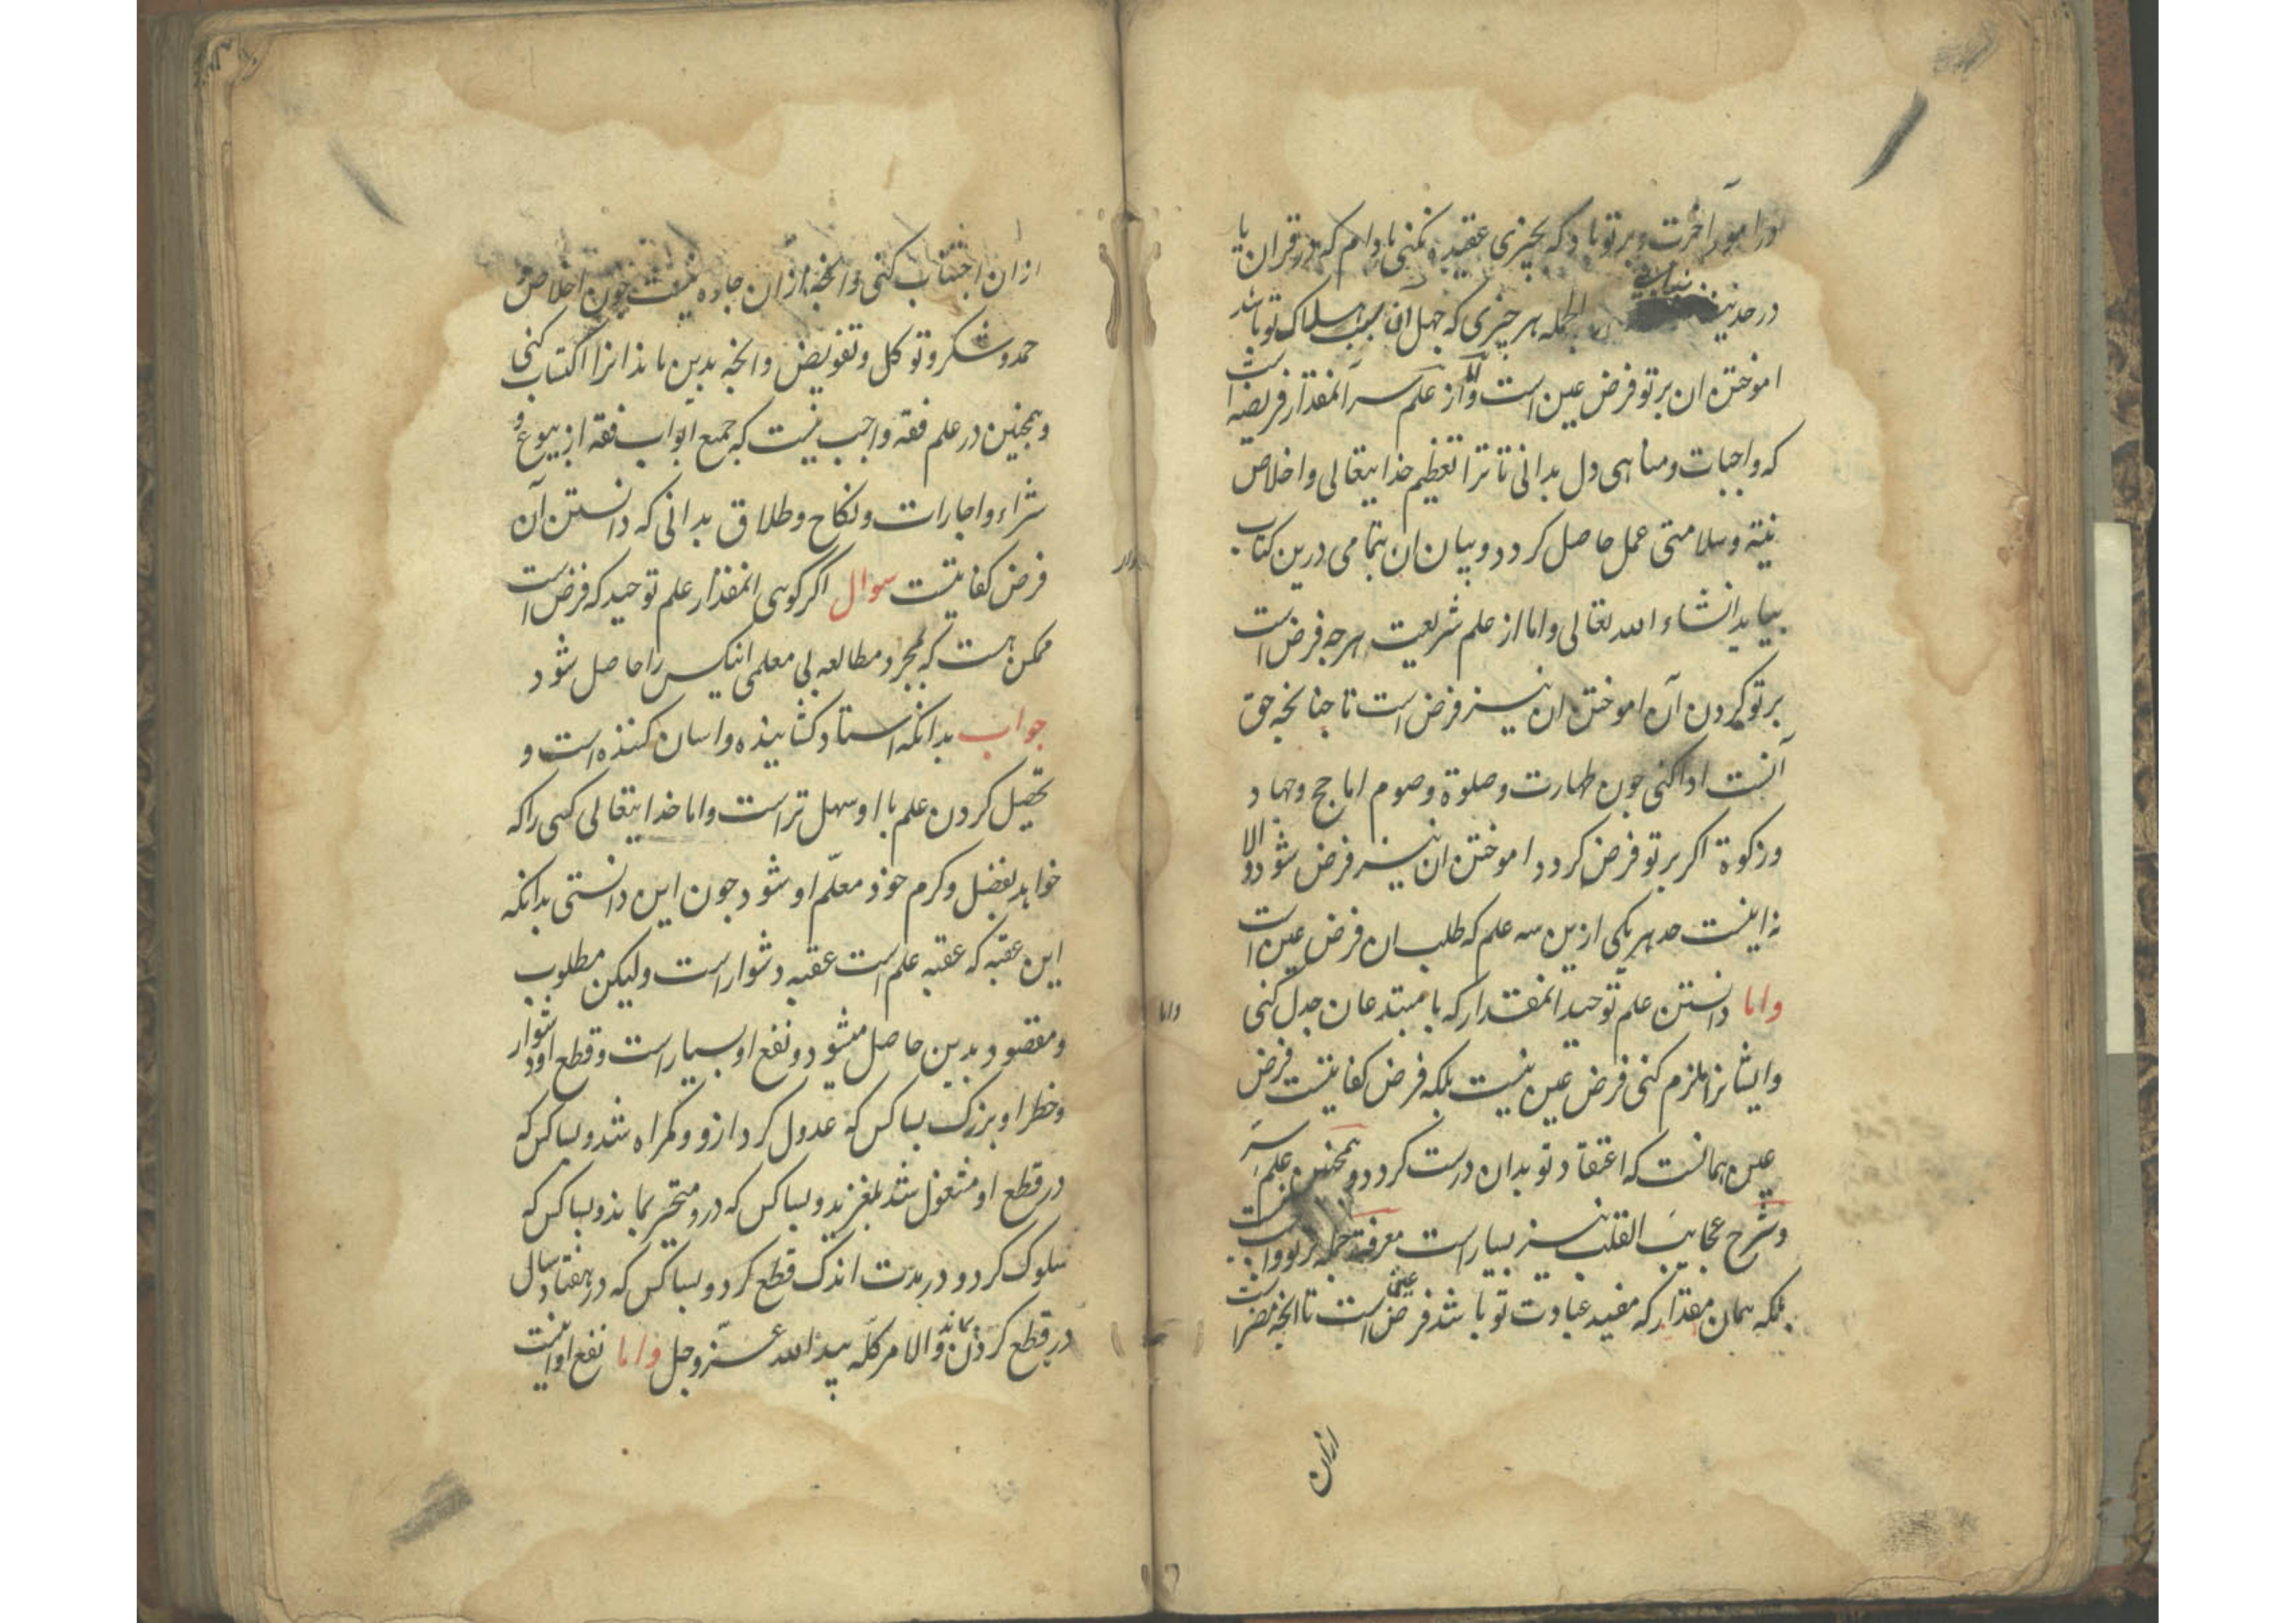 در امور آخرت و بر تو باد که بچیزی عقیده نکنی مادام که در قران یا
در حدیث نیابی الجمله هر چیزی که جهل آن سبب هلاک تو باشد
اموختن ان بر تو فرض عین است و اما از علم سر آنمقدار فریضه است
که واجبات و مناهی دل بدانی تا ترا تعظیم خدایتعالی و اخلاص
نیة و سلامتی عمل حاصل کردد و بیان ان بتمامی درین کتاب
بیاید انشاء الله تعالی و اما از علم شریعت هرچه فرض است
بر تو کردن آن اموختن ان نیز فرض است تا جنانجه حق
آنست ادا کنی جون طهارت و صلوة و صوم اما حج و جهاد
و زکوة اکر بر تو فرض کردد اموختن ان نیز فرض شود والا
نه اینست حد هر یکی ازین سه علم که طلب ان فرض عین است
واما دانستن علم توحید انمقدار که با مبتدعان جدل کنی
و ایشانرا ملزم کنی فرض عین نیست بلکه فرض کفایتست فرض
عین همانست که اعتقاد تو بدان درست کردد و همجنین علم سر
و شرح عجایب القلب نیز بسیار است معرفة جمله بر تو واجب نیست
بلکه همان مقدار که مفید عبادت تو باشد فرض عین است تا انجه مضر است
ازان
ازان اجتناب کنی و انجه ازان جاره نیست جون اخلاص
حمد و شکر و توکل و تفویض و انجه بدین ماند انرا اکتساب کنی
و همجنین در علم فقه واجب نیست که جمیع ابواب فقه از بیوع و
شراء و اجارات و نکاح و طلاق بدانی که دانستن آن
فرض کفایتست سوال اکر کوی انمقدار علم توحید که فرض است
ممکن هست که بمجرد مطالعه بی معلمی انیکس را حاصل شود
جواب بدانکه استاد کشاینده و اسان کننده است و
تحصیل کردن علم با او سهل تر است و اما خدایتعالی کسی را که
خواهد بفضل و کرم خود معلّم او شود جون این دانستی بدانکه
این عقبه که عقبه علم است عقبه دشوار است ولیکن مطلوب
و مقصود بدین حاصل میشود و نفع او بسیار است و قطع او دشوار
و خطر او بزرک بسا کس که عدول کرد ازو و کمراه شد و بسا کس که
در قطع او مشغول شد بلغزید و بسا کس که درو متحیر بماند و بسا کس که
سلوک کرد و در مدت اندک قطع کرد و بسا کس که در هفتاد سال
در قطع کردن بماند و الامر کلّه بید الله عزّ و جل واما نفع او اینست